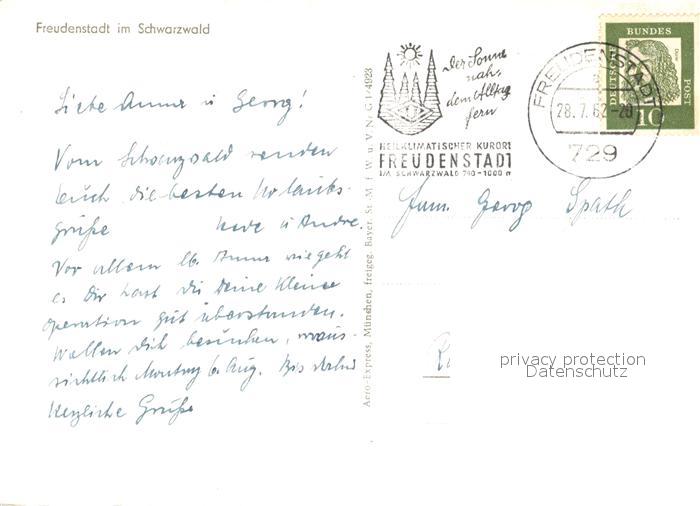 Freudenstadt im Schwarzwald
Liebe Anna u Georg!
Vom Schwarzwald senden
Euch die besten Urlaubs-
grüße u Andre.
Vor allem lb. Anna wie geht
es Dir hast du Deine kleine
Operation gut überstanden.
Wollen Dich besuchen, voraus-
sichtlich Montag 6. Aug. Bis dahin
Herzliche Grüße
Aero-Express, München, freigeg. Bayer. St. M. f. W. u. V. Nr. G 14/4923
der Sonne
nah,
dem Alltag
fern
HEILKLIMATISCHER KURORT
FREUDENSTADT
IM SCHWARZWALD 740-1000 m
FREUDENSTADT
28.7.62-20
729
DEUTSCHE
BUNDES
POST
10
Fam. Georg Späth
privacy protection
Datenschutz